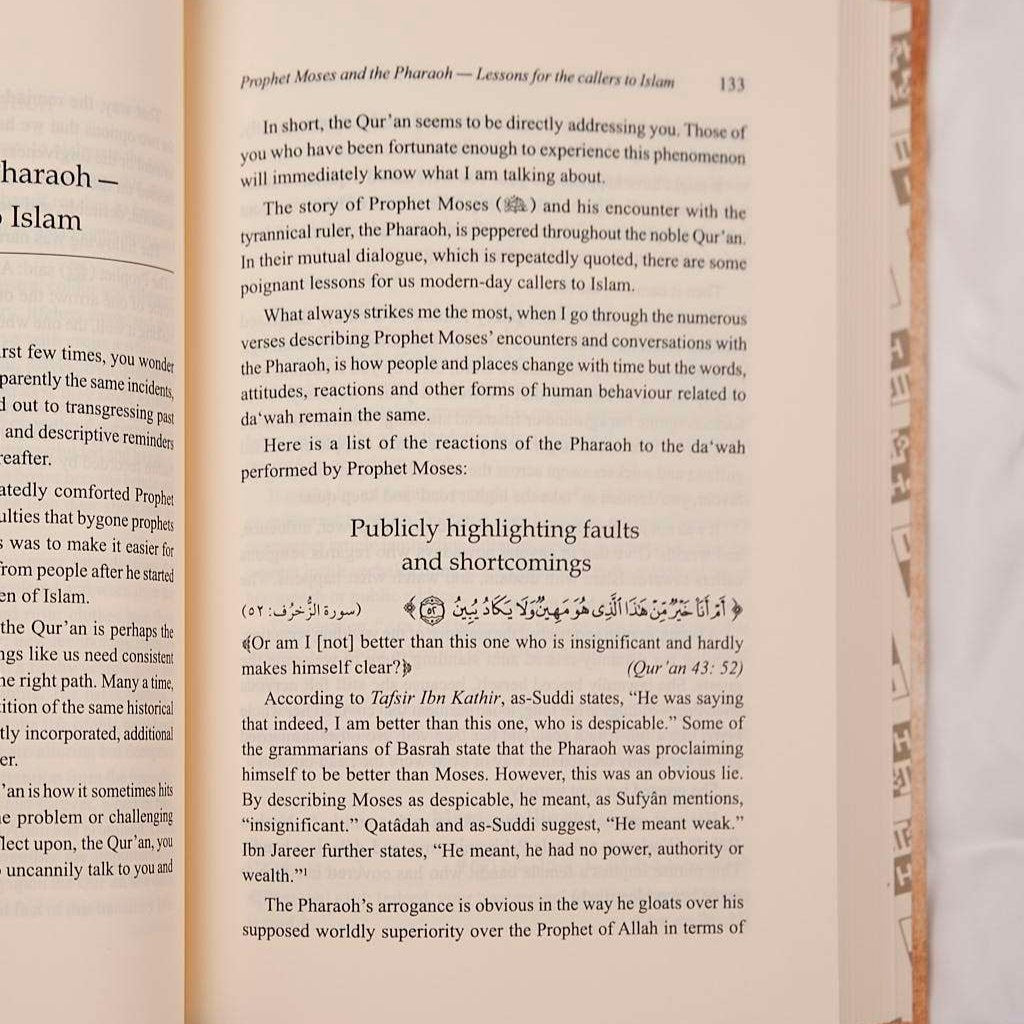 haraoh —
o Islam
rst few times, you wonder
parently the same incidents,
d out to transgressing past
and descriptive reminders
reafter.
atedly comforted Prophet
ulties that bygone prophets
s was to make it easier for
from people after he started
en of Islam.
the Qur’an is perhaps the
ngs like us need consistent
he right path. Many a time,
tition of the same historical
tly incorporated, additional
er.
’an is how it sometimes hits
e problem or challenging
flect upon, the Qur’an, you
uncannily talk to you and
Prophet Moses and the Pharaoh — Lessons for the callers to Islam 133
In short, the Qur’an seems to be directly addressing you. Those of
you who have been fortunate enough to experience this phenomenon
will immediately know what I am talking about.
The story of Prophet Moses () and his encounter with the
tyrannical ruler, the Pharaoh, is peppered throughout the noble Qur’an.
In their mutual dialogue, which is repeatedly quoted, there are some
poignant lessons for us modern-day callers to Islam.
What always strikes me the most, when I go through the numerous
verses describing Prophet Moses’ encounters and conversations with
the Pharaoh, is how people and places change with time but the words,
attitudes, reactions and other forms of human behaviour related to
da‘wah remain the same.
Here is a list of the reactions of the Pharaoh to the da‘wah
performed by Prophet Moses:
Publicly highlighting faults
and shortcomings
﴿أَمْ أَنَا۠ خَيْرٌ مِّنْ هَٰذَا الَّذِي هُوَ مَهِينٌ وَلَا يَكَادُ يُبِينُ ٥٢﴾ (سورة الزُّخرُف: ٥٢)
﴾Or am I [not] better than this one who is insignificant and hardly
makes himself clear?﴿ (Qur’an 43: 52)
According to Tafsir Ibn Kathir, as-Suddi states, “He was saying
that indeed, I am better than this one, who is despicable.” Some of
the grammarians of Basrah state that the Pharaoh was proclaiming
himself to be better than Moses. However, this was an obvious lie.
By describing Moses as despicable, he meant, as Sufyân mentions,
“insignificant.” Qatâdah and as-Suddi suggest, “He meant weak.”
Ibn Jareer further states, “He meant, he had no power, authority or
wealth.”¹
The Pharaoh’s arrogance is obvious in the way he gloats over his
supposed worldly superiority over the Prophet of Allah in terms of